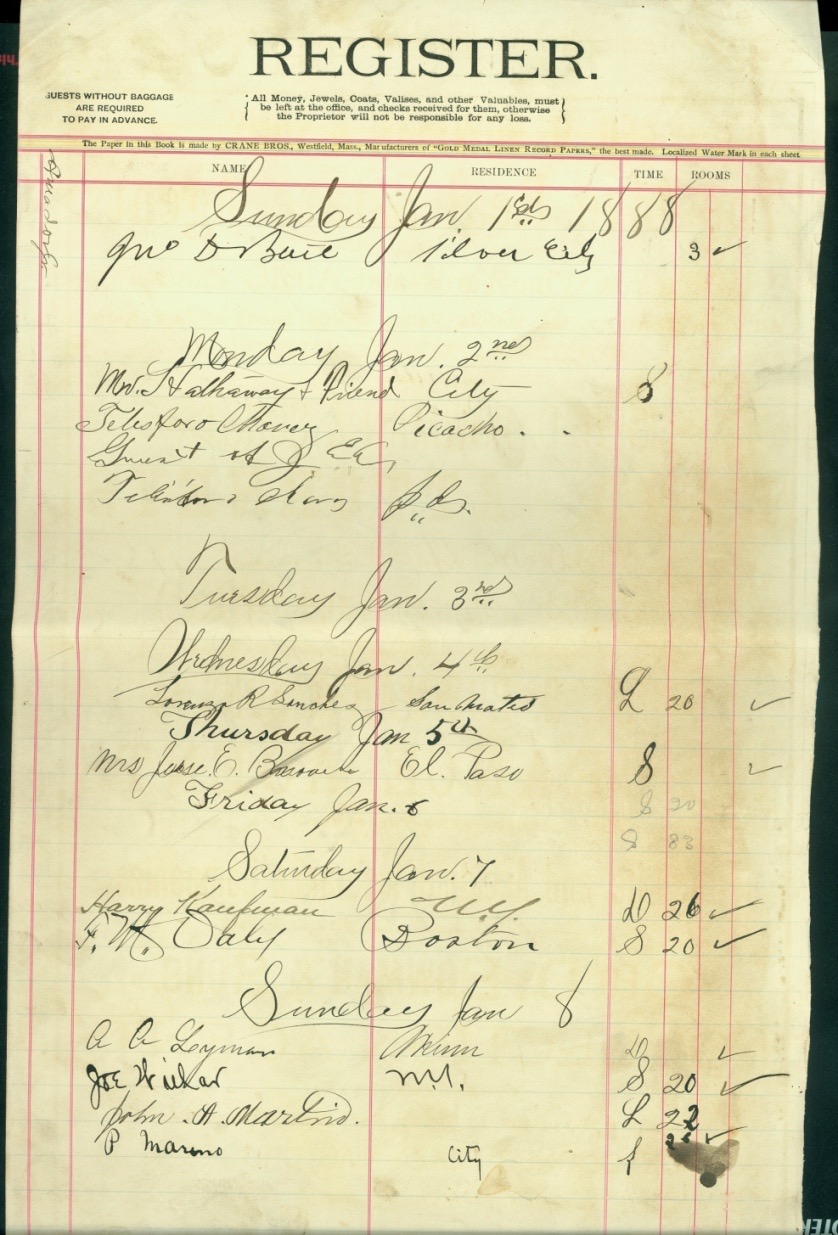 REGISTER.
GUESTS WITHOUT BAGGAGE
ARE REQUIRED
TO PAY IN ADVANCE.
All Money, Jewels, Coats, Valises, and other Valuables, must
be left at the office, and checks received for them, otherwise
the Proprietor will not be responsible for any loss.
The Paper in this Book is made by CRANE BROS., Westfield, Mass., Manufacturers of "GOLD MEDAL LINEN RECORD PAPERS," the best made. Localized Water Mark in each sheet
NAME RESIDENCE TIME ROOMS
Sunday Jan. 1st 1888
Jno D Bail Silver City 3 ✓
Monday Jan. 2nd
Hathaway & Friend City S
Telesforo Chavez Picacho
Guest of J
do.
Tuesday Jan. 3rd
Wednesday Jan. 4th
Lorenzo R Sanches San Mateo L 20 ✓
Thursday Jan 5th
Mrs E. El Paso S ✓
Friday Jan. 6 S 20
S 83
Saturday Jan. 7
Harry Kaufman N.Y. D 26 ✓
F. M. Daly Boston S 20 ✓
Sunday Jan 8
A A Lyman Minn D ✓
Joe N.Y. S 20 ✓
John A. Martin L 22
P Mareno City ✓